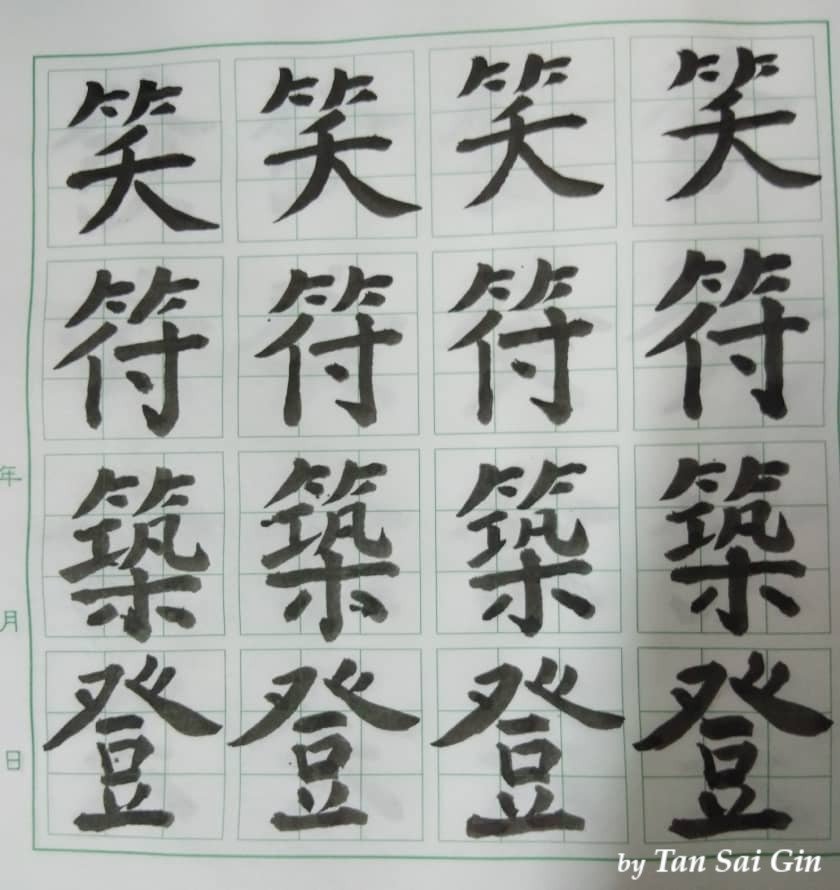 笑笑笑笑
符符符符
築築築築
登登登登
年
月
日
by Tan Sai Gin